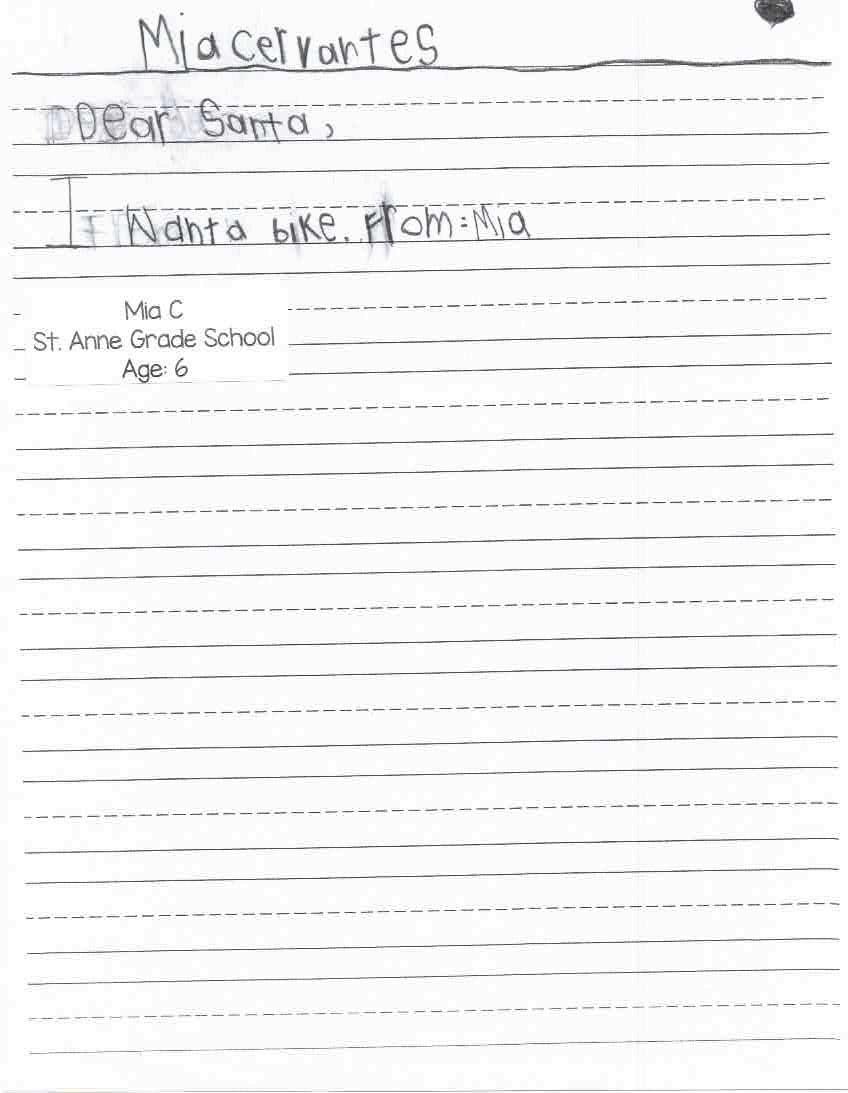 Mia cervantes
Dear Santa,
I Wanta bike. From: Mia
Mia C
St. Anne Grade School
Age: 6